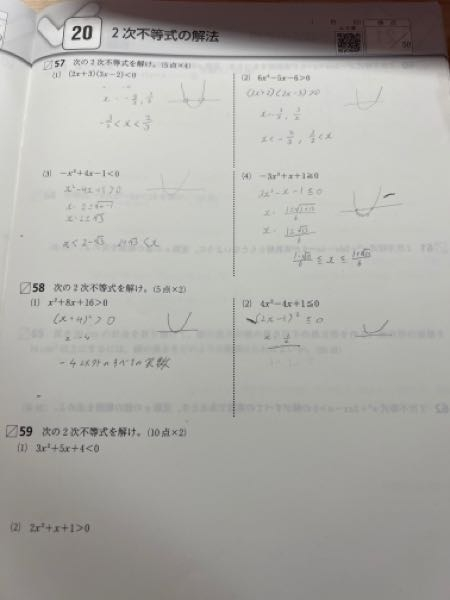 20 2次不等式の解法
50
57 次の2次不等式を解け。(5点×4)
(1) (2x+3)(3x-2)<0
x = -3/2, 2/3
-3/2 < x < 2/3
(2) 6x²-5x-6>0
(3x+2)(2x-3)>0
x<-2/3, 3/2<x
(3) -x²+4x-1<0
x²-4x+1>0
x=2±√3
x<2-√3, 2+√3<x
(4) -3x²+x+1≧0
3x²-x-1≦0
x= 1±√1+12/6
1±√13/6
1-√13/6 ≦ x ≦ 1+√13/6
58 次の2次不等式を解け。(5点×2)
(1) x²+8x+16>0
(x+4)²>0
-4以外のすべての実数
(2) 4x²-4x+1≦0
(2x-1)²≦0
59 次の2次不等式を解け。(10点×2)
(1) 3x²+5x+4<0
(2) 2x²+x+1>0